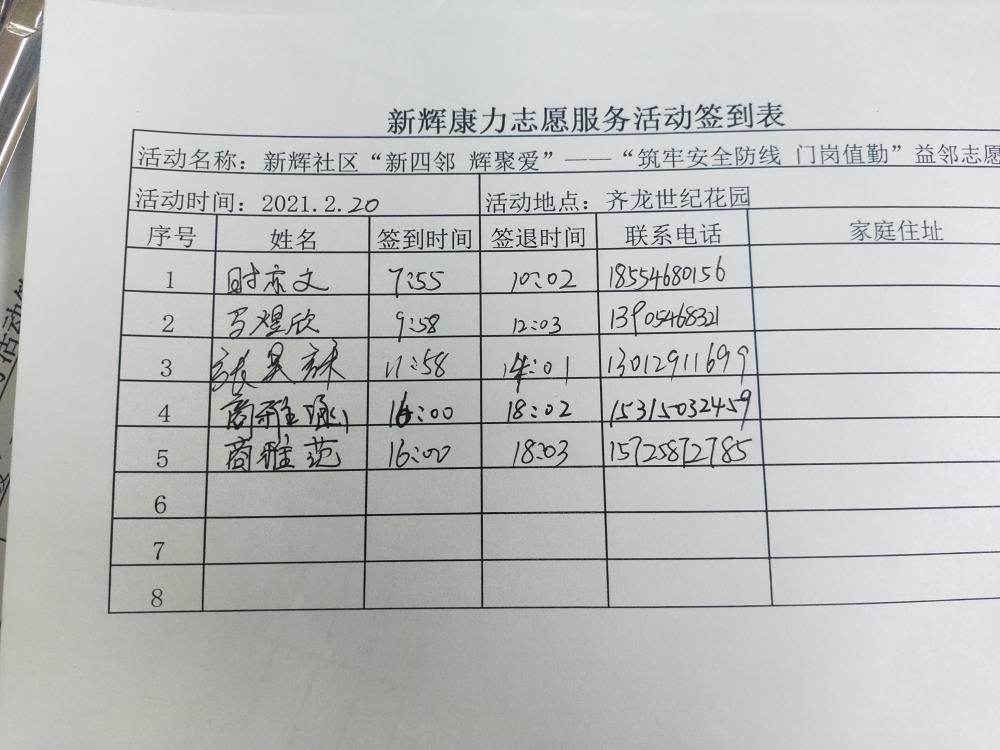 新辉康力志愿服务活动签到表
活动名称：新辉社区“新四邻 辉聚爱”——“筑牢安全防线 门岗值勤”益邻志愿
活动时间：2021.2.20 活动地点：齐龙世纪花园
序号 姓名 签到时间 签退时间 联系电话 家庭住址
1 时亦文 7:55 10:02 18554680156
2 马煜欣 9:58 12:03 13905468321
3 张昊 11:58 14:01 13012911699
4 商雅 16:00 18:02 15315032459
5 商雅范 16:00 18:03 15725872785
6
7
8
活动